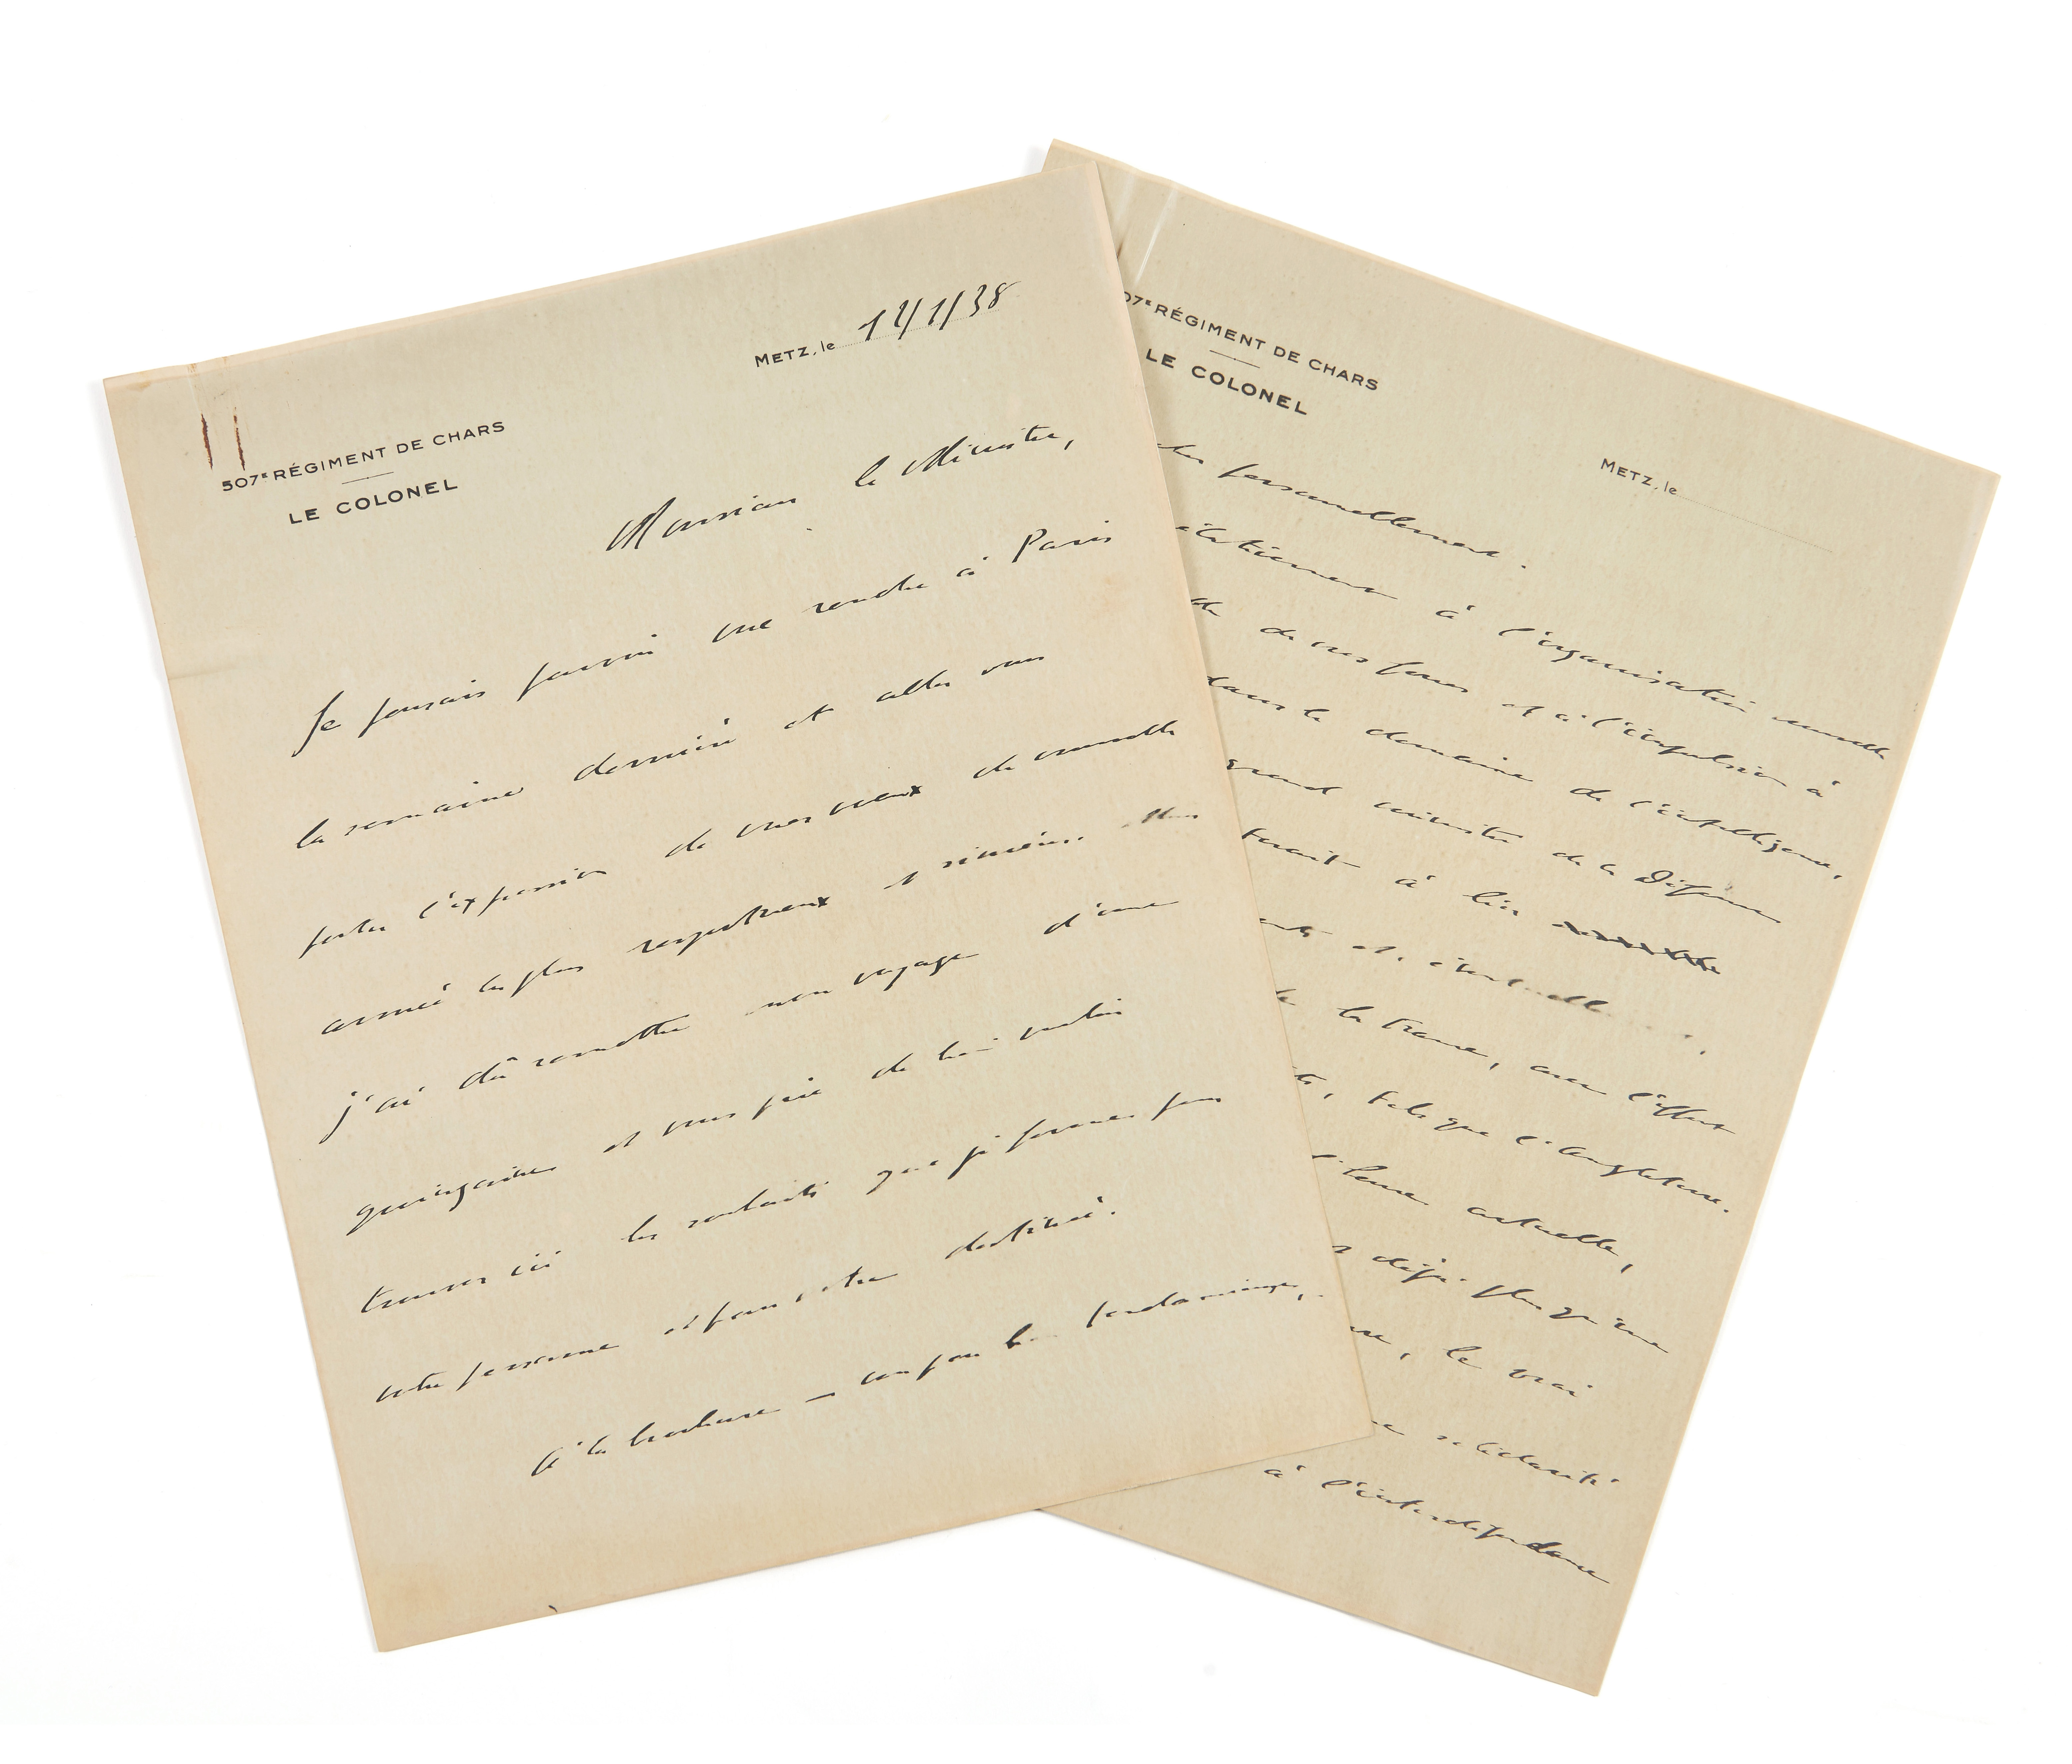 507E RÉGIMENT DE CHARS
LE COLONEL
METZ, le 12/1/38
Monsieur le Ministre,
Je pensais pouvoir me rendre à Paris
la semaine dernière et aller vous
porter l'expression de mes vœux de nouvelle
année les plus respectueux et sincères. Mais
j'ai dû remettre mon voyage d'une
quinzaine et vous prie de bien vouloir
trouver ici les souhaits que je forme pour
votre personne et pour votre destinée.
à la brochure – un peu
07E RÉGIMENT DE CHARS
LE COLONEL
METZ, le
personnellement.
à l'organisation nouvelle
de nos forces et à l'impulsion à
dans le domaine de l'intelligence,
grand ministre de la Défense
à lier
et, éventuelle
de la France, avec l'effort
tels que l'Angleterre.
l'heure actuelle,
déjà plus qu'une
, le vrai
solidarité
à l'interdépendance